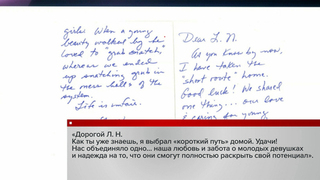 girls! When a young
beauty walked by he
loved to "grab snatch,"
whereas we ended
up snatching grub in
the mess halls of the
system.
Life is unfair.
Dear L. N.
As you know by now,
I have taken the
"short route" home.
Good luck! We shared
one thing... our love
& caring for young
«Дорогой Л. Н.
Как ты уже знаешь, я выбрал «короткий путь» домой. Удачи!
Нас объединяло одно... наша любовь и забота о молодых девушках
и надежда на то, что они смогут полностью раскрыть свой потенциал».